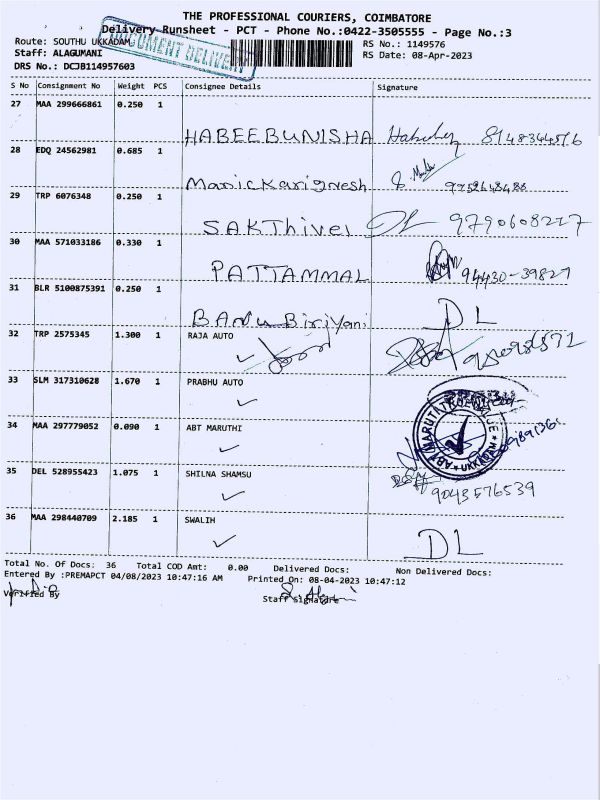 THE PROFESSIONAL COURIERS, COIMBATORE
Delivery Runsheet - PCT - Phone No.:0422-3505555 - Page No.:3
Route: SOUTHU UKKADAM RS No.: 1149576
DOCUMENT DELIVERY
Staff: ALAGUMANI RS Date: 08-Apr-2023
DRS No.: DCJB114957603
S No Consignment No Weight PCS Consignee Details Signature
27 MAA 299666861 0.250 1
HABEEBUNISHA
28 EDQ 24562981 0.685 1
29 TRP 6076348 0.250 1
SAKThivel DL 9790608227
30 MAA 571033186 0.330 1
PATTAMMAL 94430-39827
31 BLR 5100875391 0.250 1
BANU Biriyani DL
32 TRP 2575345 1.300 1 RAJA AUTO
33 SLM 317310628 1.670 1 PRABHU AUTO
34 MAA 297779052 0.090 1 ABT MARUTHI
UKKADAM
35 DEL 528955423 1.075 1 SHILNA SHAMSU
9043576539
36 MAA 298440709 2.185 1 SWALIH
DL
Total No. Of Docs: 36 Total COD Amt: 0.00 Delivered Docs: Non Delivered Docs:
Entered By :PREMAPCT 04/08/2023 10:47:16 AM Printed On: 08-04-2023 10:47:12
Verified By Staff Signature